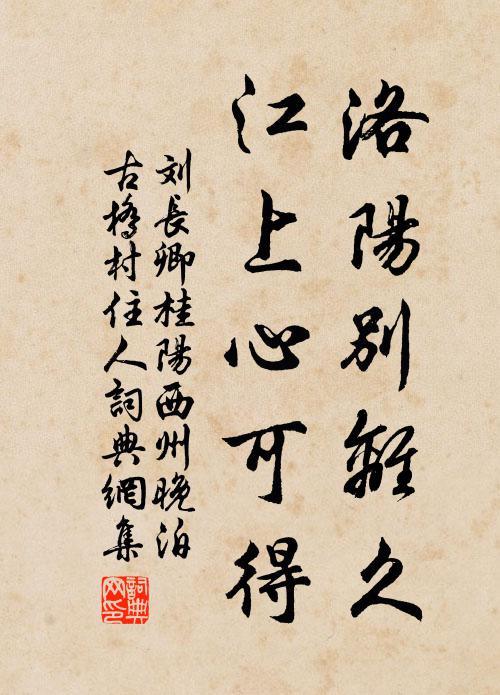 洛陽別離久
江上心可得
刘長卿桂陽西州晚泊
古橋村住人詞典網集
詞典
网印